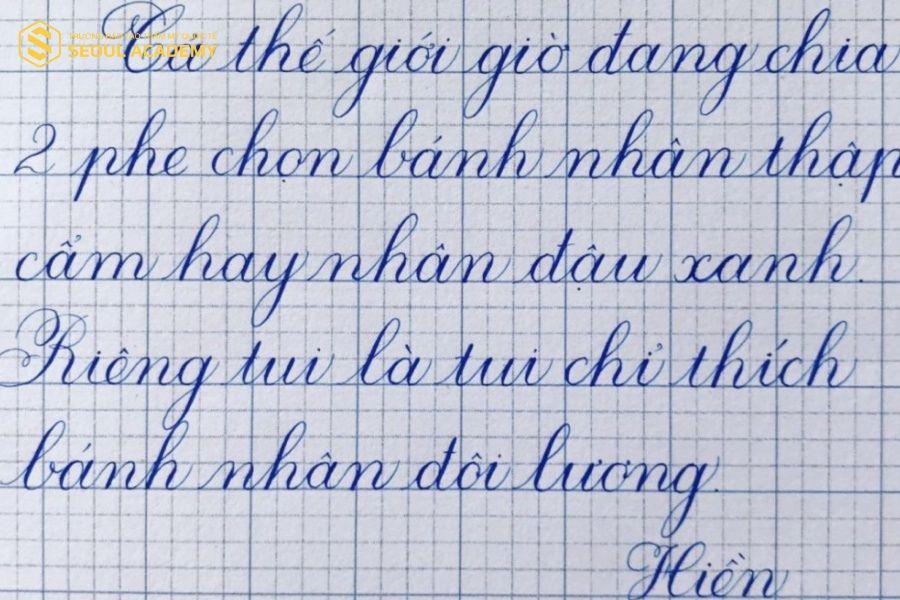 TRƯỜNG ĐÀO TẠO THẨM MỸ QUỐC TẾ
SEOUL ACADEMY
Cả thế giới giờ đang chia
2 phe chọn bánh nhân thập
cẩm hay nhân đậu xanh.
Riêng tui là tui chỉ thích
bánh nhân đôi lương.
Hiền